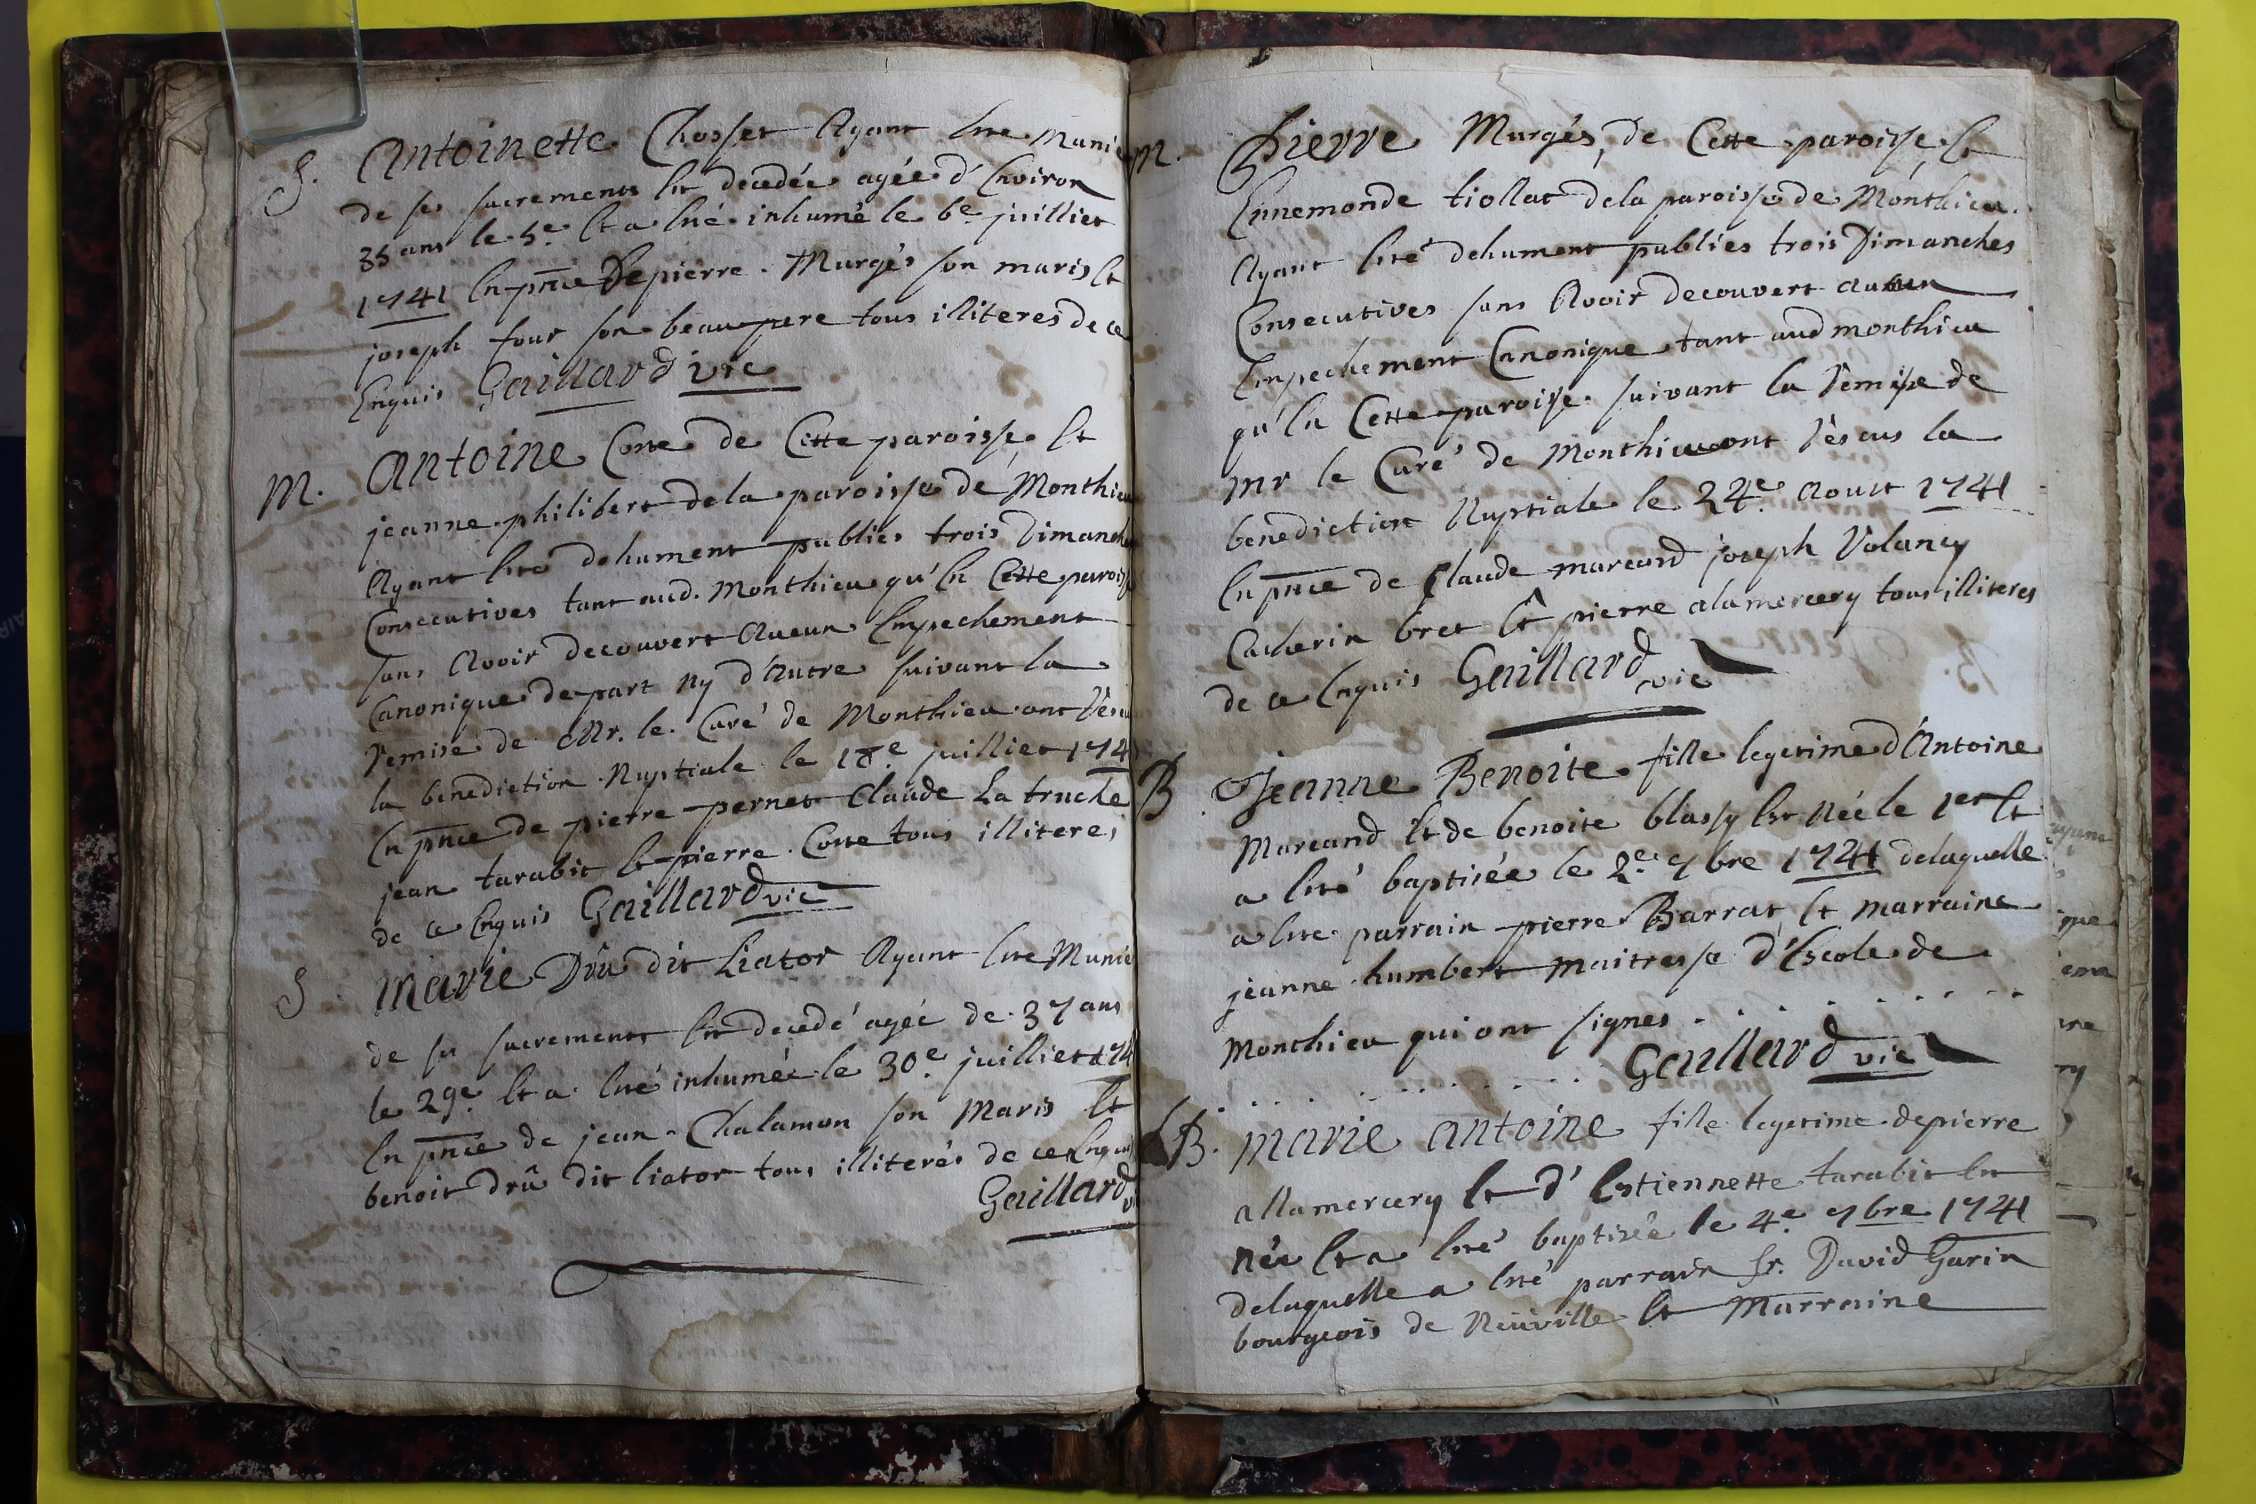 S. Antoinette Chosset Ayant ete Munie
de ses sacrements est decedée agée d'Environ
35 ans le 5e. et a eté inhumé le 6e juilliet
1741 En pnce De pierre Murgés son maris et
joseph four son beaupere tous illiteres de ce
Enquis Gaillard vic
M. Antoine Coste de Cette paroisse et
jeanne philibert dela paroisse de Monthieu
Ayant eté dehument publiés trois Dimanches
Consecutives tant aud. Monthieu qu'En Cette paroisse
sans Avoir decouvert Aucun Empechement
Canonique de part ny d'Autre suivant la
Remise de Mr. le Curé de Monthieu ont Résçu
la benediction Nuptiale le 18e juilliet 1741
En pnce de pierre pernet Claude La truche
jean tarabit et pierre Coste tous illiteres
de ce Enquis Gaillard vic
S. Marie Drû dit Liator Ayant ete Munie
de ses sacrements est decedé agéé de 37 ans
le 29e et a eté inhumée le 30e juilliet 1741
En pnce de jean Chalamon son Maris et
benoit drû dit liator tous illiterés de ce Enquis
Gaillard vi
M. Pierre Murgés, De Cette paroisse et
Ennemonde tiollat dela paroisse de Monthieu
Ayant eté dehument publiés trois Dimanches
Consecutives sans Avoir decouvert aucun
Empechement Cannonique tant aud monthieu
qu'En Cette paroisse suivant la Remise de
Mr le Curé de Monthieu ont Résçus la
benediction Nuptiale le 24e Aoust 1741
En pnce de Claude marcand joseph Volancy
Catherin bret et pierre alamercery tous illiteres
de ce Enquis Gaillard vic
B Jeanne Benoite fille legetime d'Antoine
Marcand et de benoite blassy est Née le 1er et
a eté baptisée le 2e 7bre 1741 delaquelle
a ete parrain pierre Barrat et marraine
jeanne humbert maitresse d'Escole de
Monthieu qui ont signes
Gaillard vic
B. Marie Antoine fille legetime de pierre
allamercery et d'Estiennette tarabit est
née et a eté baptisée le 4e 7bre 1741
delaquelle a eté parrain sr. David Garin
bourgeois de Neuville et Marraine